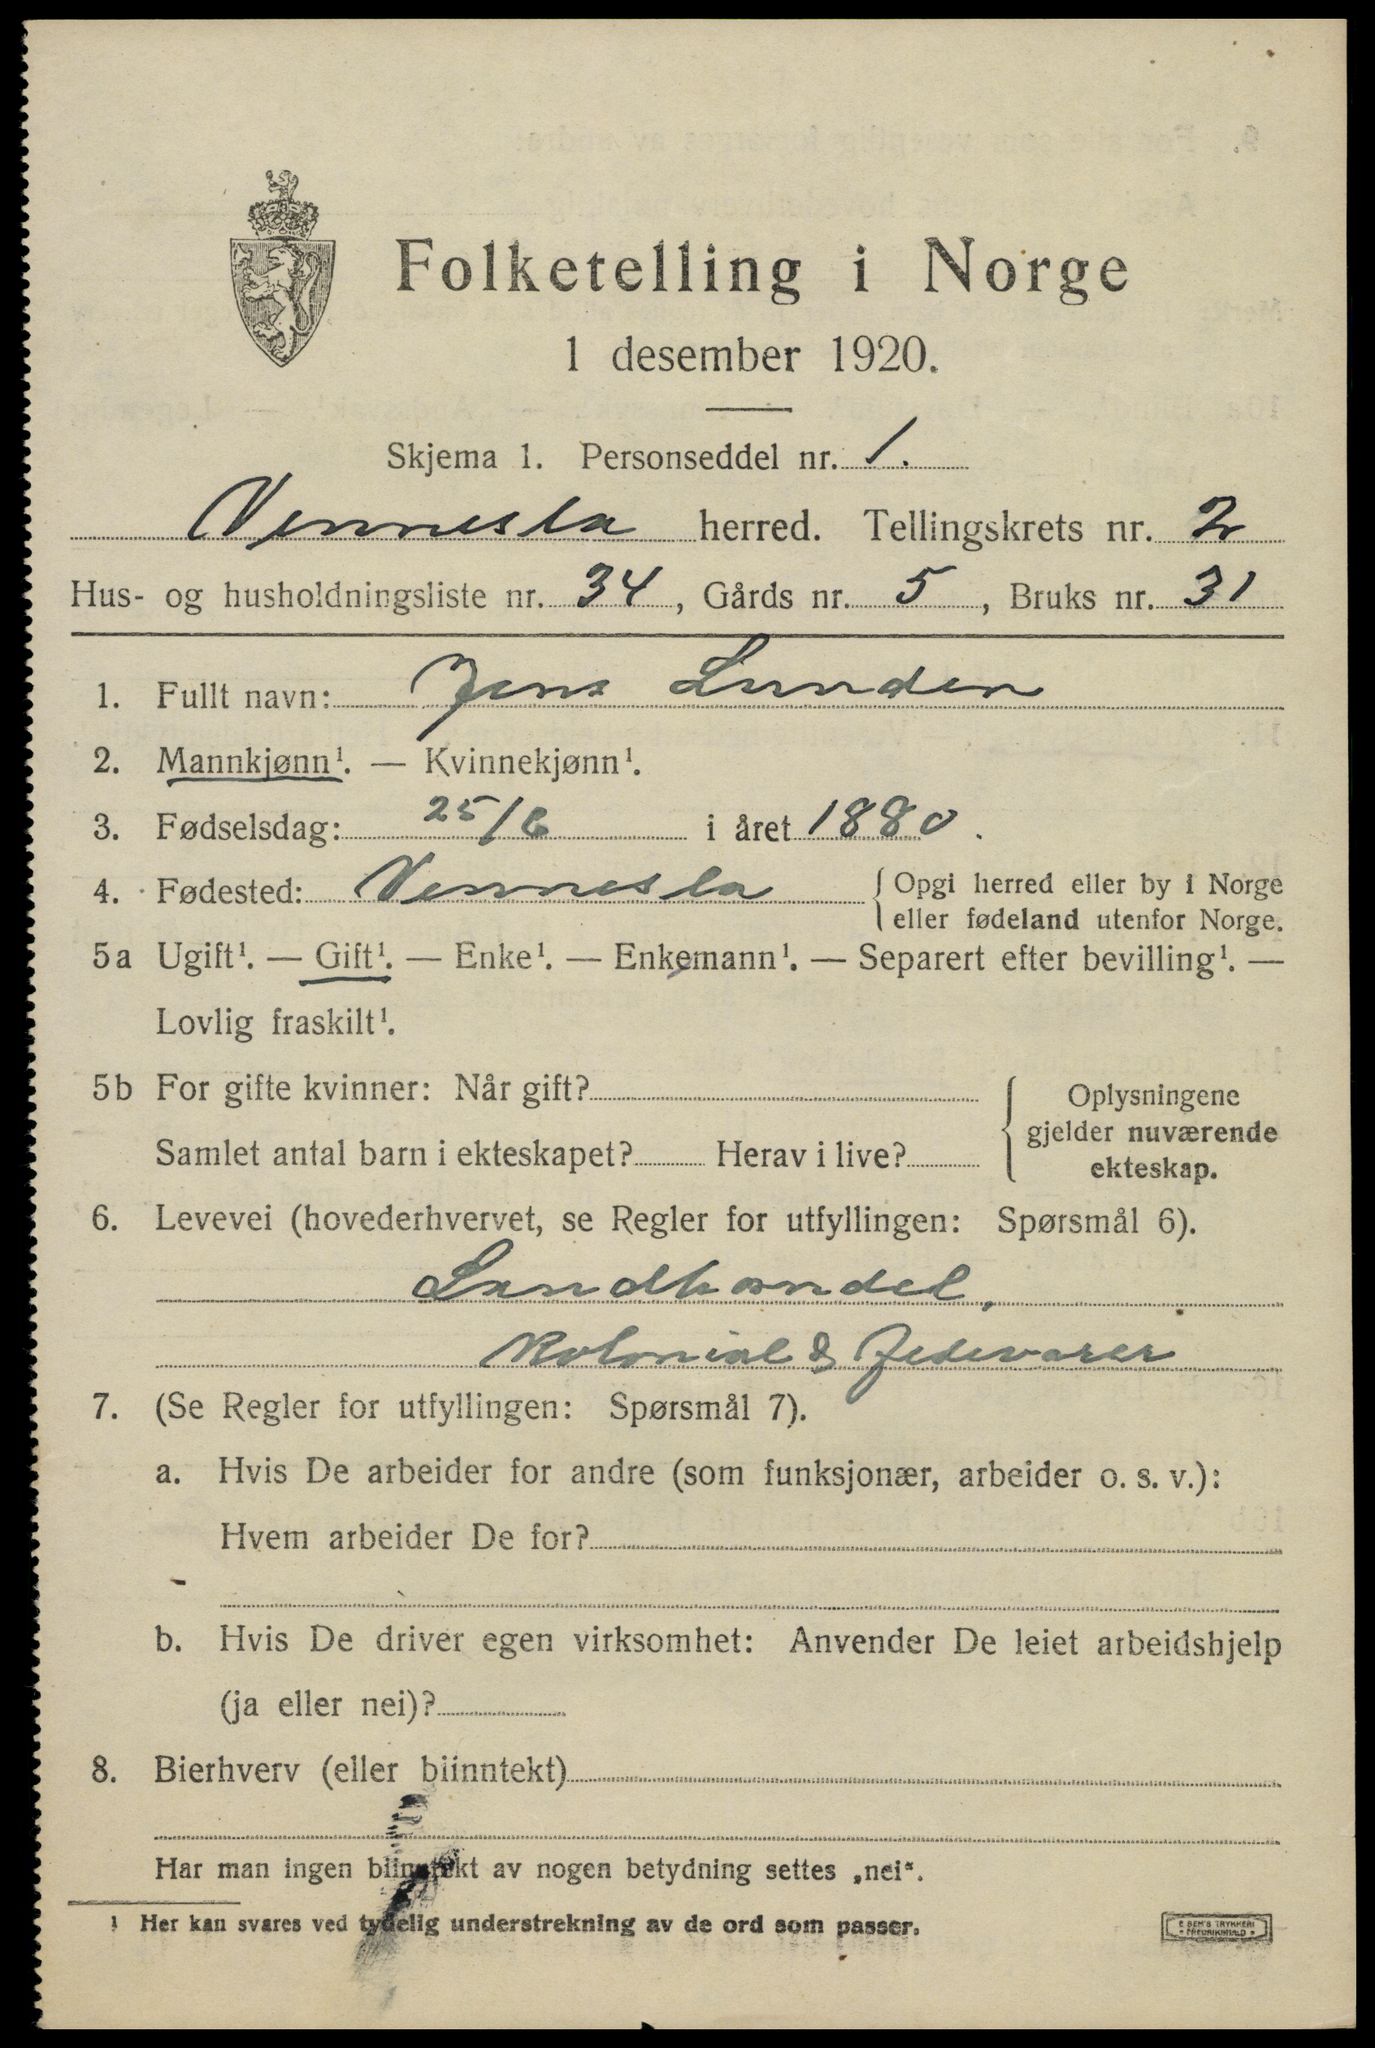 Folketelling i Norge
1 desember 1920.
Skjema 1. Personseddel nr. 1.
Vennesla herred. Tellingskrets nr. 2
Hus- og husholdningsliste nr. 34, Gårds nr. 5, Bruks nr. 31
1. Fullt navn: Jens Lunden
2. Mannkjønn¹. — Kvinnekjønn¹.
3. Fødselsdag: 25/6 i året 1880.
4. Fødested: Vennesla { Opgi herred eller by i Norge
eller fødeland utenfor Norge.
5a Ugift¹. — Gift¹. — Enke¹. — Enkemann¹. — Separert efter bevilling¹. —
Lovlig fraskilt¹.
5b For gifte kvinner: Når gift?
Samlet antal barn i ekteskapet? Herav i live?
{ Oplysningene
gjelder nuværende
ekteskap.
6. Levevei (hovederhvervet, se Regler for utfyllingen: Spørsmål 6).
Landhandel,
Kolonial & Fedevarer
7. (Se Regler for utfyllingen: Spørsmål 7).
a. Hvis De arbeider for andre (som funksjonær, arbeider o. s. v.):
Hvem arbeider De for?
b. Hvis De driver egen virksomhet: Anvender De leiet arbeidshjelp
(ja eller nei)?
8. Bierhverv (eller biinntekt)
Har man ingen biinntekt av nogen betydning settes „nei“.
¹ Her kan svares ved tydelig understrekning av de ord som passer.
E SEM'S TRYKKERI
FREDRIKSHALD